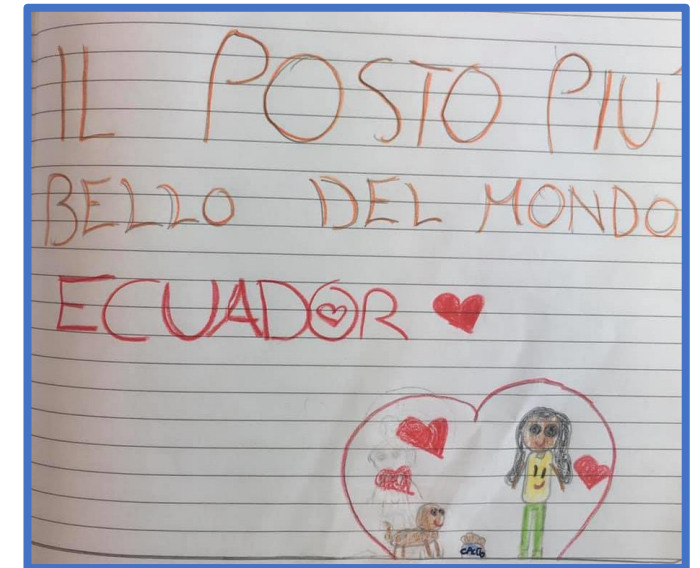 IL POSTO PIU'
BELLO DEL MONDO
ECUADOR